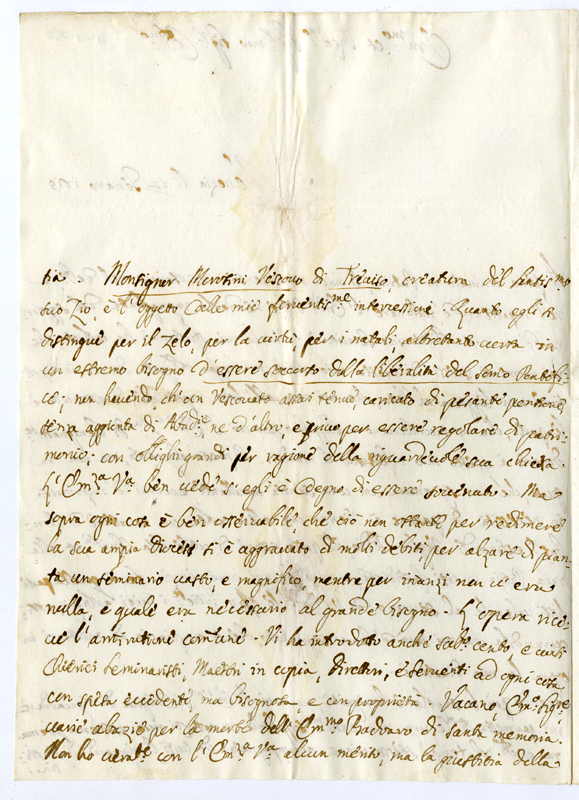 tia. Monsignor Morosini Vescovo di Treviso, creatura del Santis.mo
suo Zio, è l'oggetto delle mie ferventis.me intercessioni. Quanto egli si
distingue per il zelo, per la virtù, per i natali, altretanto versa in
un estremo bisogno d'essere soccorso dalla liberalità del Sommo Pontefi-
ce; non havendo ch'un Vescovato assai tenue, caricato di pesante pensione,
senza aggionta di Abadie, ne d'altro, e privo per essere regolare di patri-
monio; con oblighi grandi per ragione della riguardevole sua chiesa.
L'Em.za V.a ben vede s'egli è degno di essere sovenuto. Ma
sopra ogni cosa è ben osservabile che ciò non ostante per redimere
la sua ampia diocesi si è aggravato di molti debiti per alzare di pian-
ta un seminario vasto, e magnifico, mentre per inanzi non v'era
nulla, e quale era necessario al grande bisogno. L'opera rice-
ve l'amiratione comune. Vi ha introdotto anche cento e vinti
Chierici Seminaristi, Maestri in copia, direttori, e serventi ad ogni cosa
con spesa eccedente ma bisognosa, e con proprietà. Vacano, Em.o Sig.re
varie abazie per la morte dell'Em.mo Badoaro di santa memoria.
Non ho veram.te con l'Em.za V.a alcun merito, ma la giustitia della